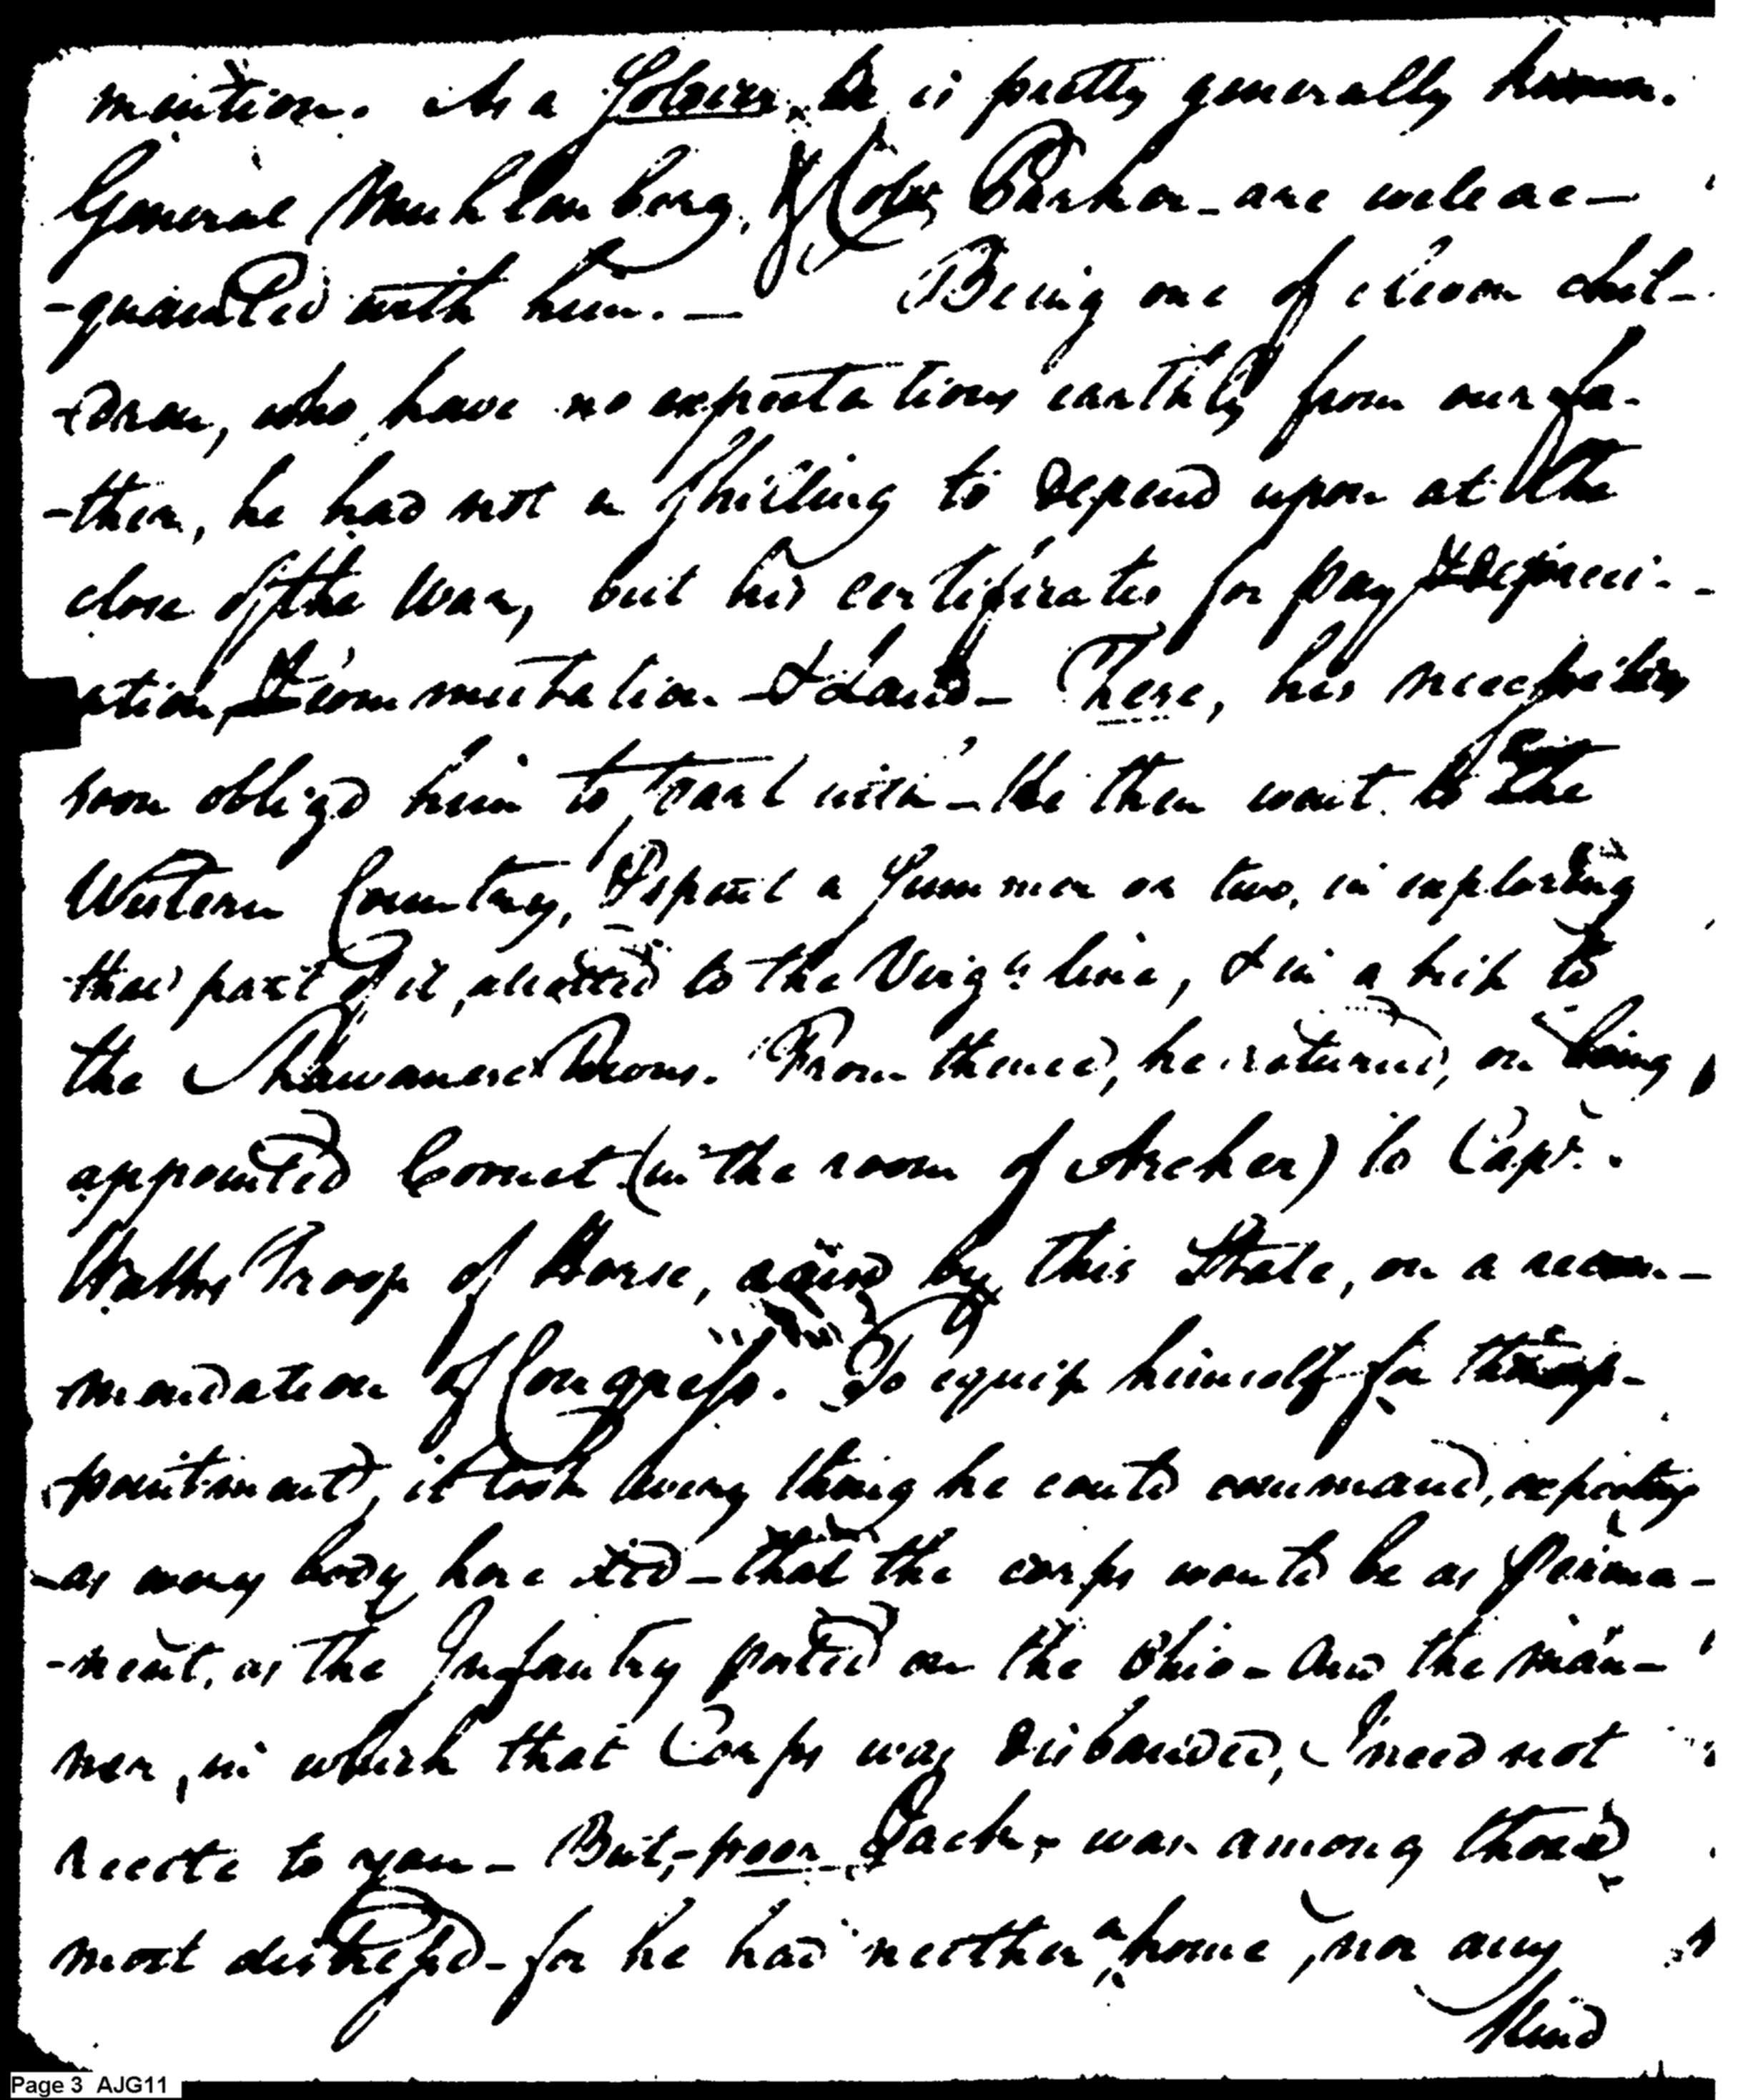 mention. As a Soldier, he is pretty generally known.
General Muhlenberg, & Colo. Parker - are well ac-
-quainted with him. — Being one of eleven chil-
-dren, who have no expectations earthly from our fa-
-ther, he had not a shilling to depend upon at the
close of the War, but his certificates for pay & depreci-
ation, & commutation & Land - These, his necessities
soon obligd him to part with - He then went to the
Western Country, & spent a Summer or two, in exploring
that part of it, allotted to the Virga. line, & in a trip to
the Shawanese Towns. From thence, he returned, on being
appointed Cornet (in the room of Archer) to Capt.
Watts Troop of Horse, raisd by this State, on a recom-
mendation of Congress. To equip himself for this ap-
pointment, it took every thing he could command, expecting
-as every body here did - that the corps would be as perma-
-nent, as the Infantry posted on the Ohio - And the man-
ner, in which that Corps was disbanded, I need not
recite to you - But, - poor Jack, was among those
most distressd - for he had neither a home, nor any
kind
Page 3 AJG11